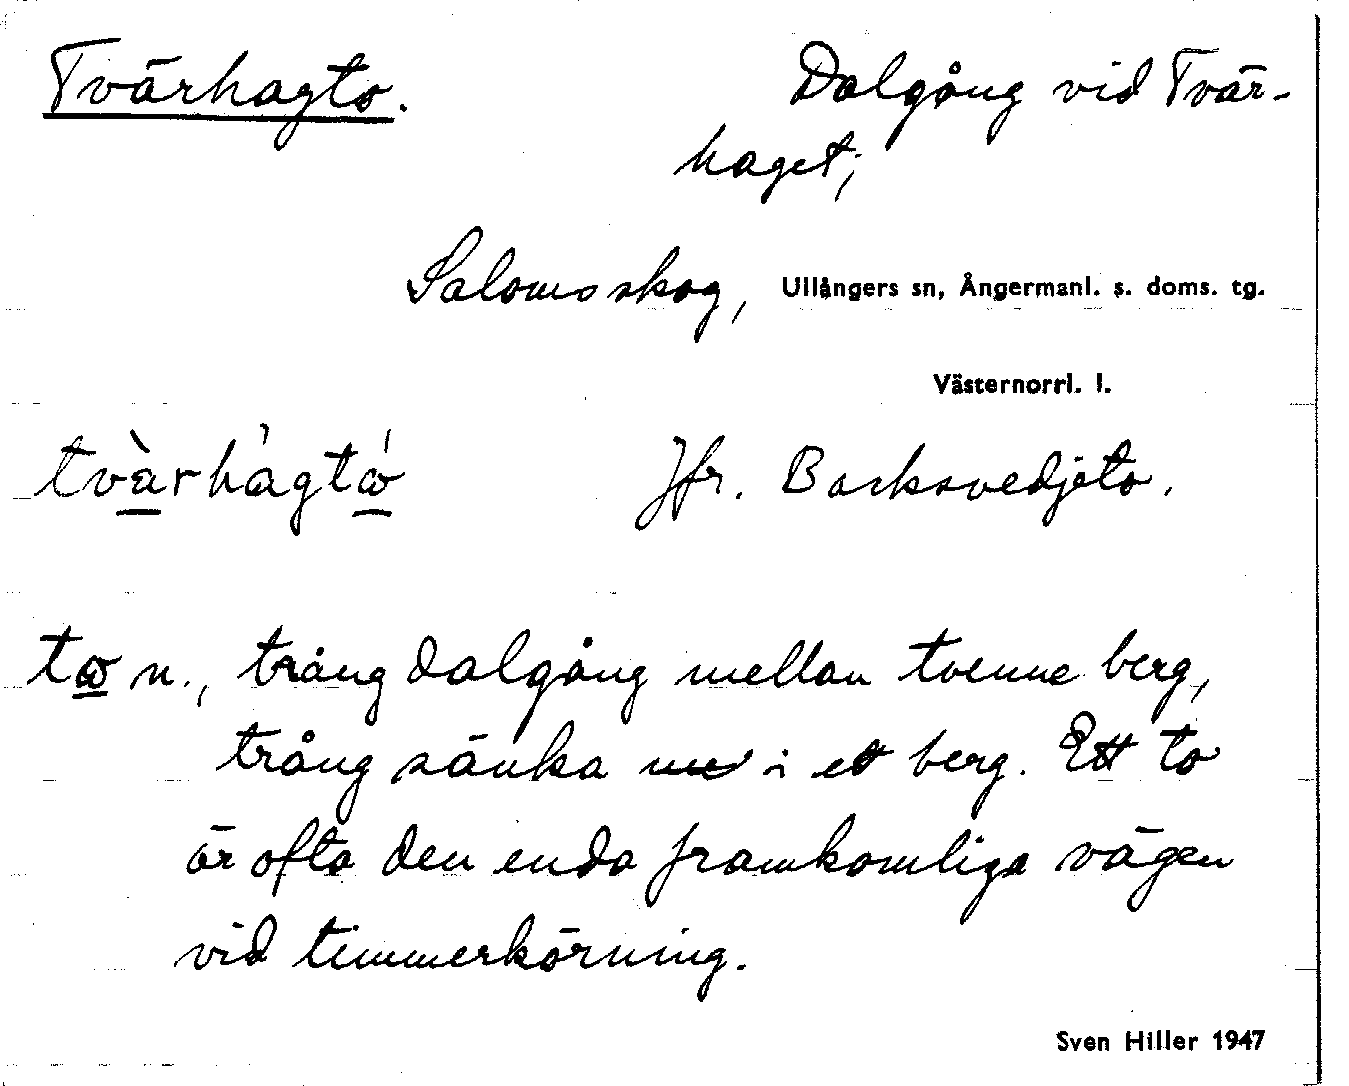 Tvärhagto. Dalgång vid Tvär-
haget;
Salomoskog, Ullångers sn, Ångermanl. s. doms. tg.
Västernorrl. l.
Jfr. Backsvedjeto.
n., trång dalgång mellan tvenne berg,
trång sänka i ett berg. Ett to
är ofta den enda framkomliga vägen
vid timmerkörning.
Sven Hiller 1947